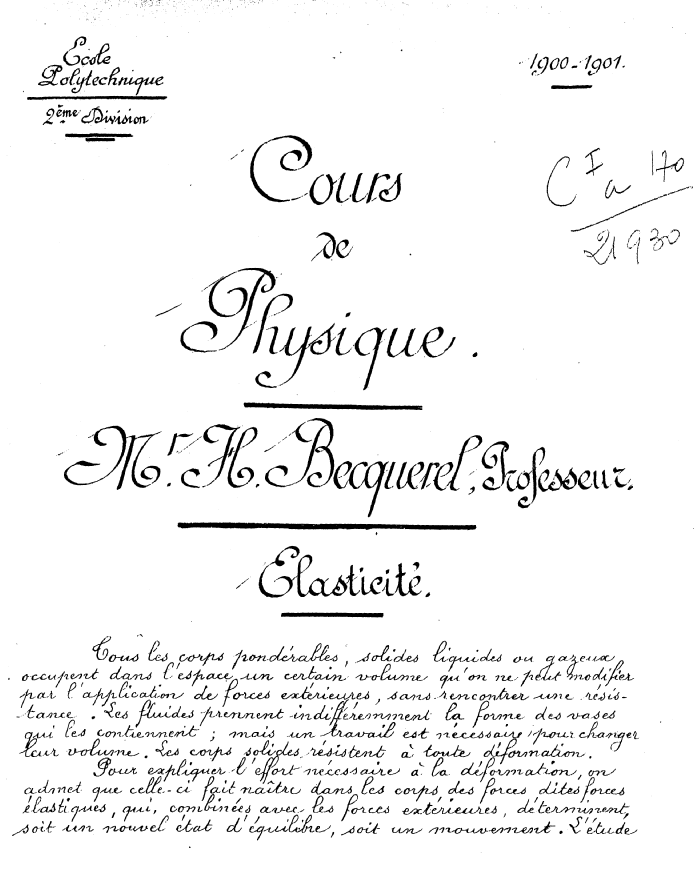 Ecole
Polytechnique
2ème Division
1900-1901.
C I a 170
21930
Cours
de
Physique.
Mr. H. Becquerel, Professeur.
Elasticité.
Tous les corps pondérables, solides liquides ou gazeux
occupent dans l'espace un certain volume qu'on ne peut modifier
par l'application de forces extérieures, sans rencontrer une résis-
tance. Les fluides prennent indifféremment la forme des vases
qui les contiennent; mais un travail est nécessaire pour changer
leur volume. Les corps solides résistent à toute déformation.
Pour expliquer l'effort nécessaire à la déformation, on
admet que celle-ci fait naître dans les corps des forces dites forces
élastiques, qui, combinées avec les forces extérieures, déterminent,
soit un nouvel état d'équilibre, soit un mouvement. L'étude